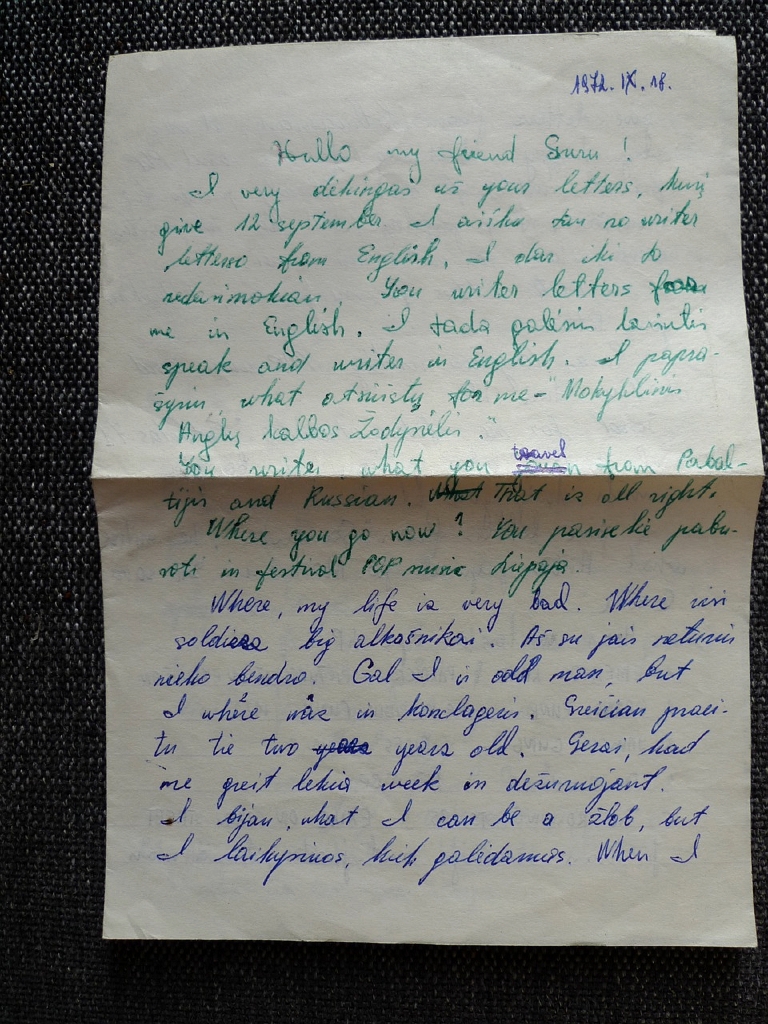 1972.IX.18.
Hullo my friend Suru !
I very dėkingas už your letters, kurį
give 12 september. I aišku tau no writer
letters from English. I dar iki to
nedasimokiau. You writer letters
me in English. I tada galėsiu lavintis
speak and writer in English. I papra-
šysiu, what atsiųstų for me - "Mokyklinis
Anglų kalbos Žodynėlis."
You writer, what you travel from Pabal-
tijis and Russian. That is all right.
Where you go now? You pasisekė pabu-
voti in festival POP music Liepaja.
Where, my life is very bad. Where visi
soldiers big alkašnikai. Aš su jais neturiu
nieko bendro. Gal I is odd man, but
I where in konclageris. Greičiau praei-
tu tie two years old. Gerai, kad
me greit lekia week in dežuruojant.
I bijau, what I can be a žlob, but
I laikysiuos, kiek galėdamas. When I